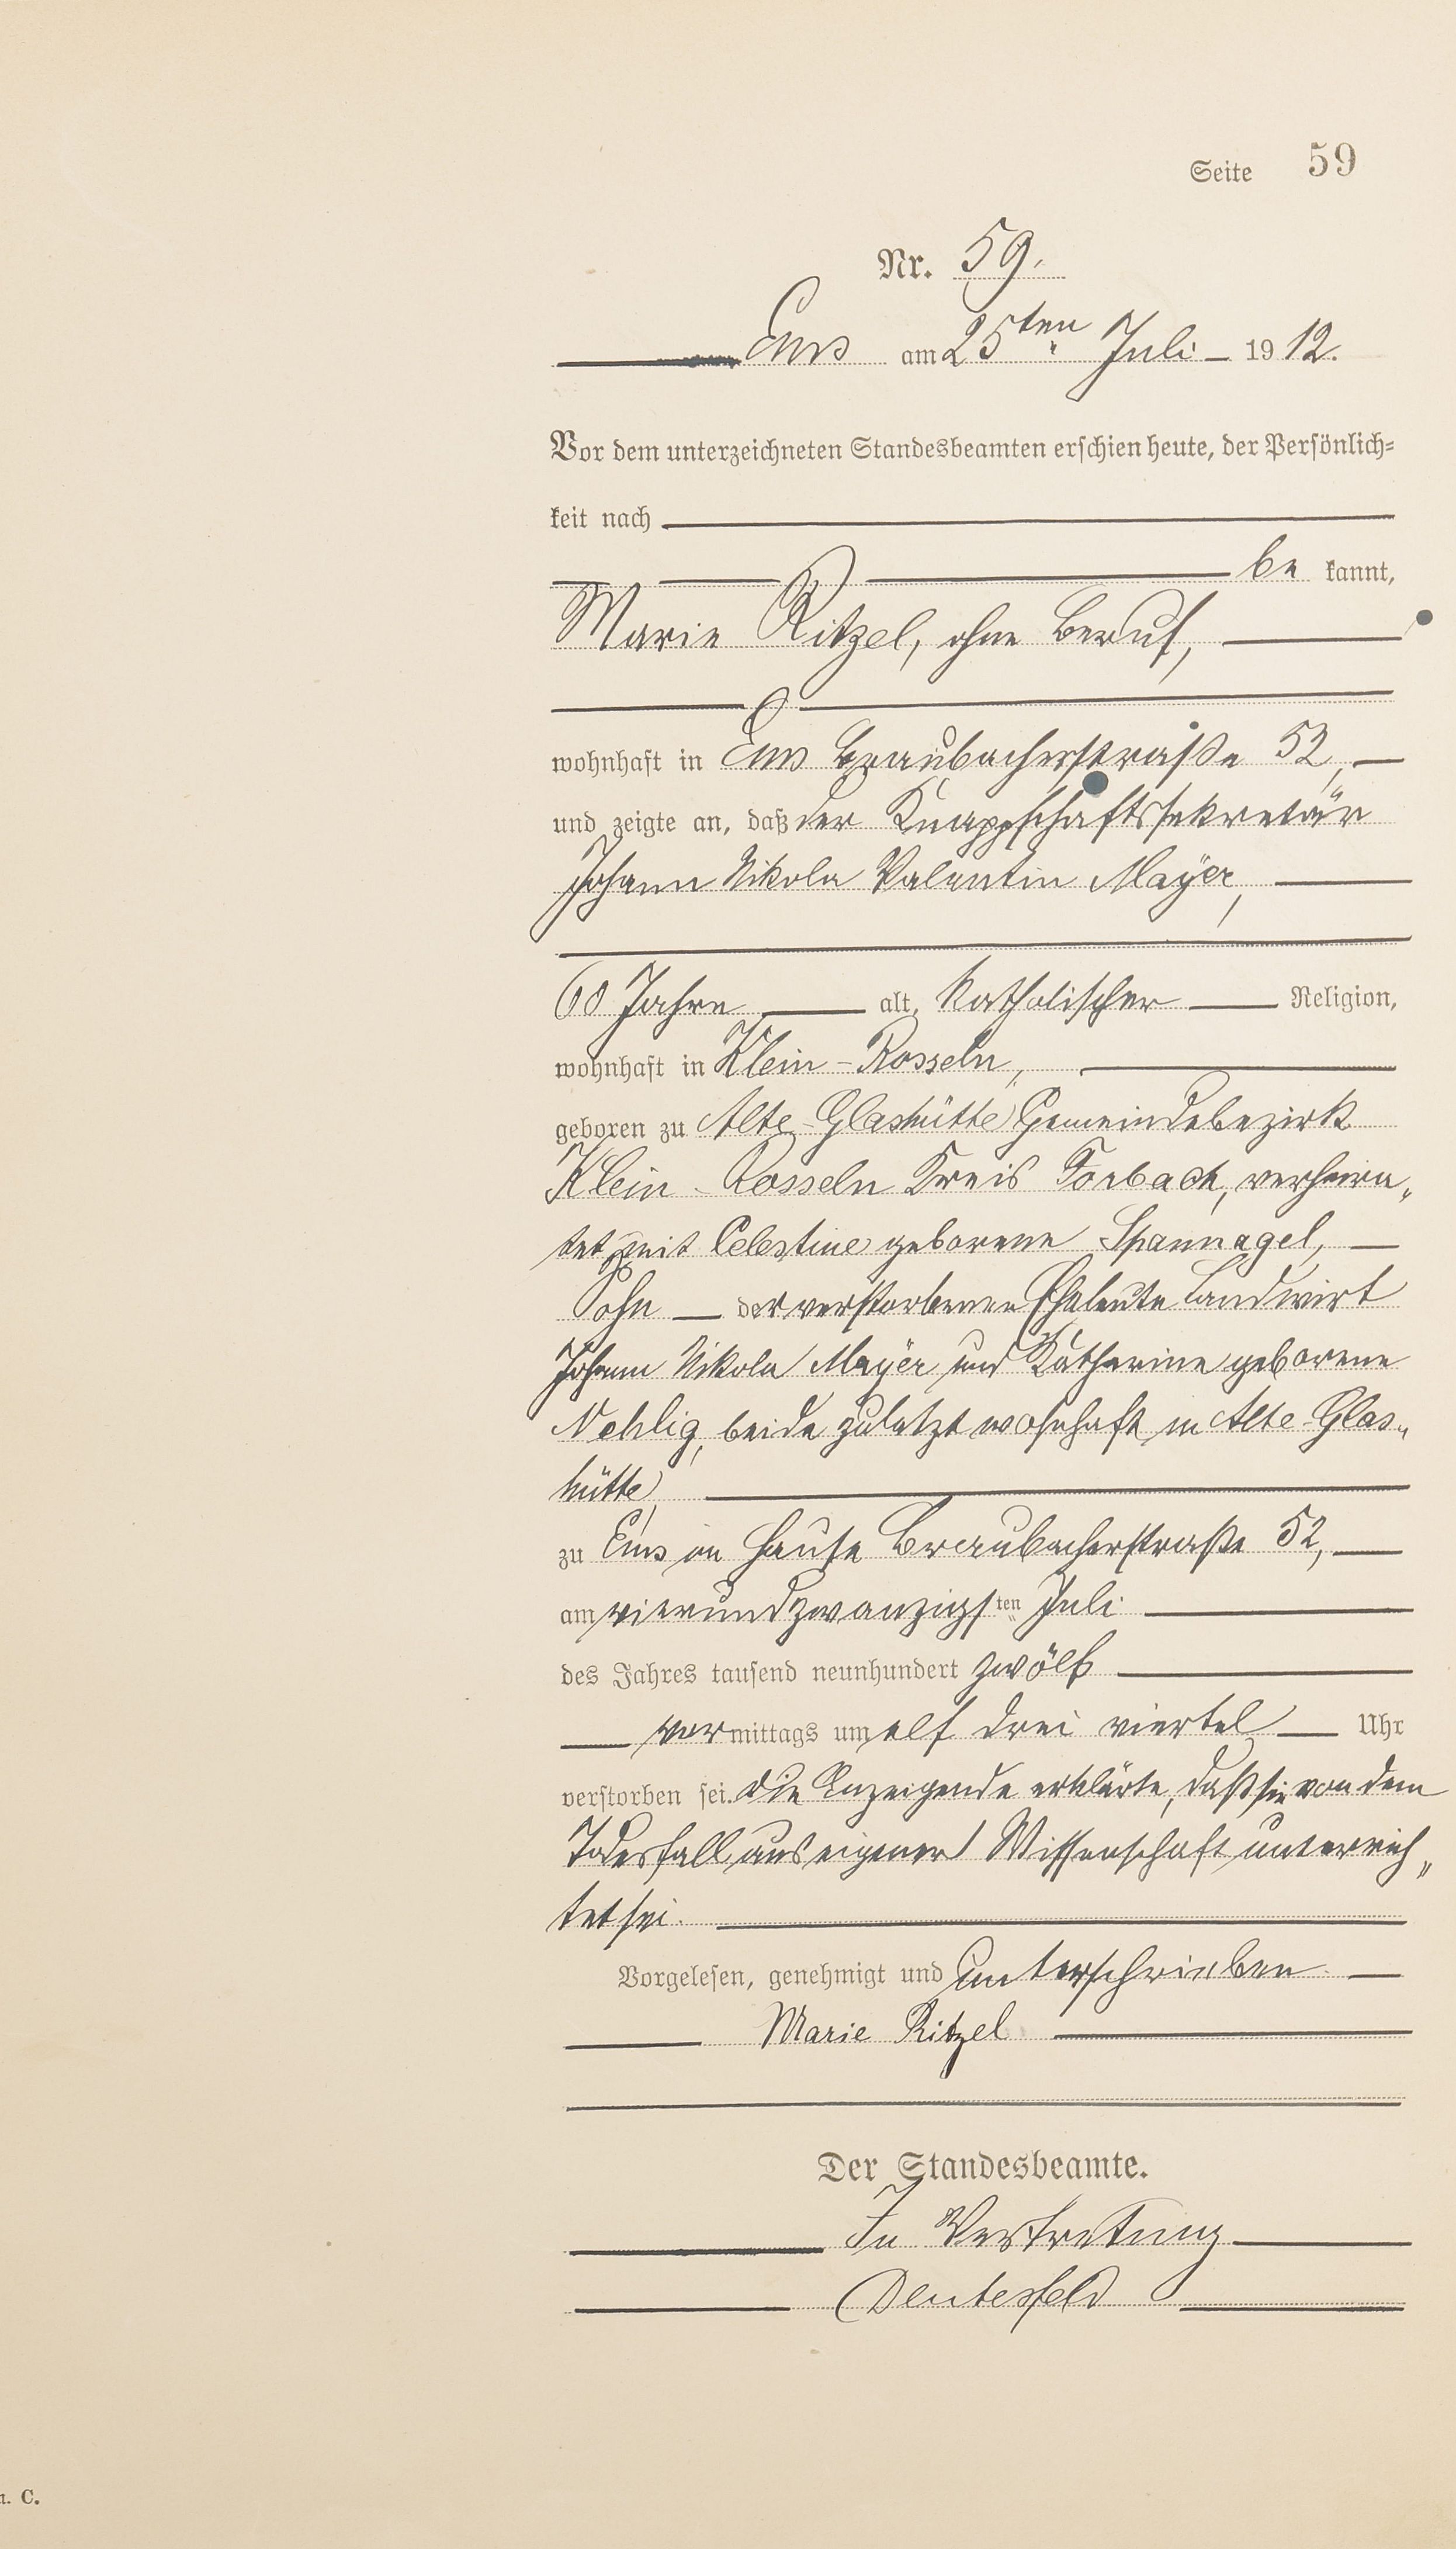 Seite 59
Nr. 59.
Ems am 25ten Juli 1912.
Vor dem unterzeichneten Standesbeamten erschien heute, der Persönlich-
keit nach
be kannt,
Marie Ritzel, ohne Beruf,
wohnhaft in Ems Braubacherstraße 52,
und zeigte an, daß der Knappschaftssekretär
Johann Nikola Valentin Mayër,
60 Jahre alt, katholischer Religion,
wohnhaft in Klein-Rosseln,
geboren zu Alte-Glashütte Gemeindebezirk
Klein-Rosseln Kreis Forbach, verheira„
tet mit Celestine geborene Spannagel,
Sohn der verstorbenen Eheleute Landwirt
Johann Nikola Mayër und Katharine geborene
Nehlig, beide zuletzt wohnhaft in Alte-Glas„
hütte,
zu Ems im Hause Braubacherstraße 52,
am vierundzwanzigsten Juli
des Jahres tausend neunhundert zwölf
vormittags um elf drei viertel Uhr
verstorben sei. Die Anzeigende erklärte, daß sie von dem
Todesfall aus eigener Wissenschaft unterrich„
tet sei.
Vorgelesen, genehmigt und unterschrieben
Marie Ritzel
Der Standesbeamte.
In Vertretung
C.